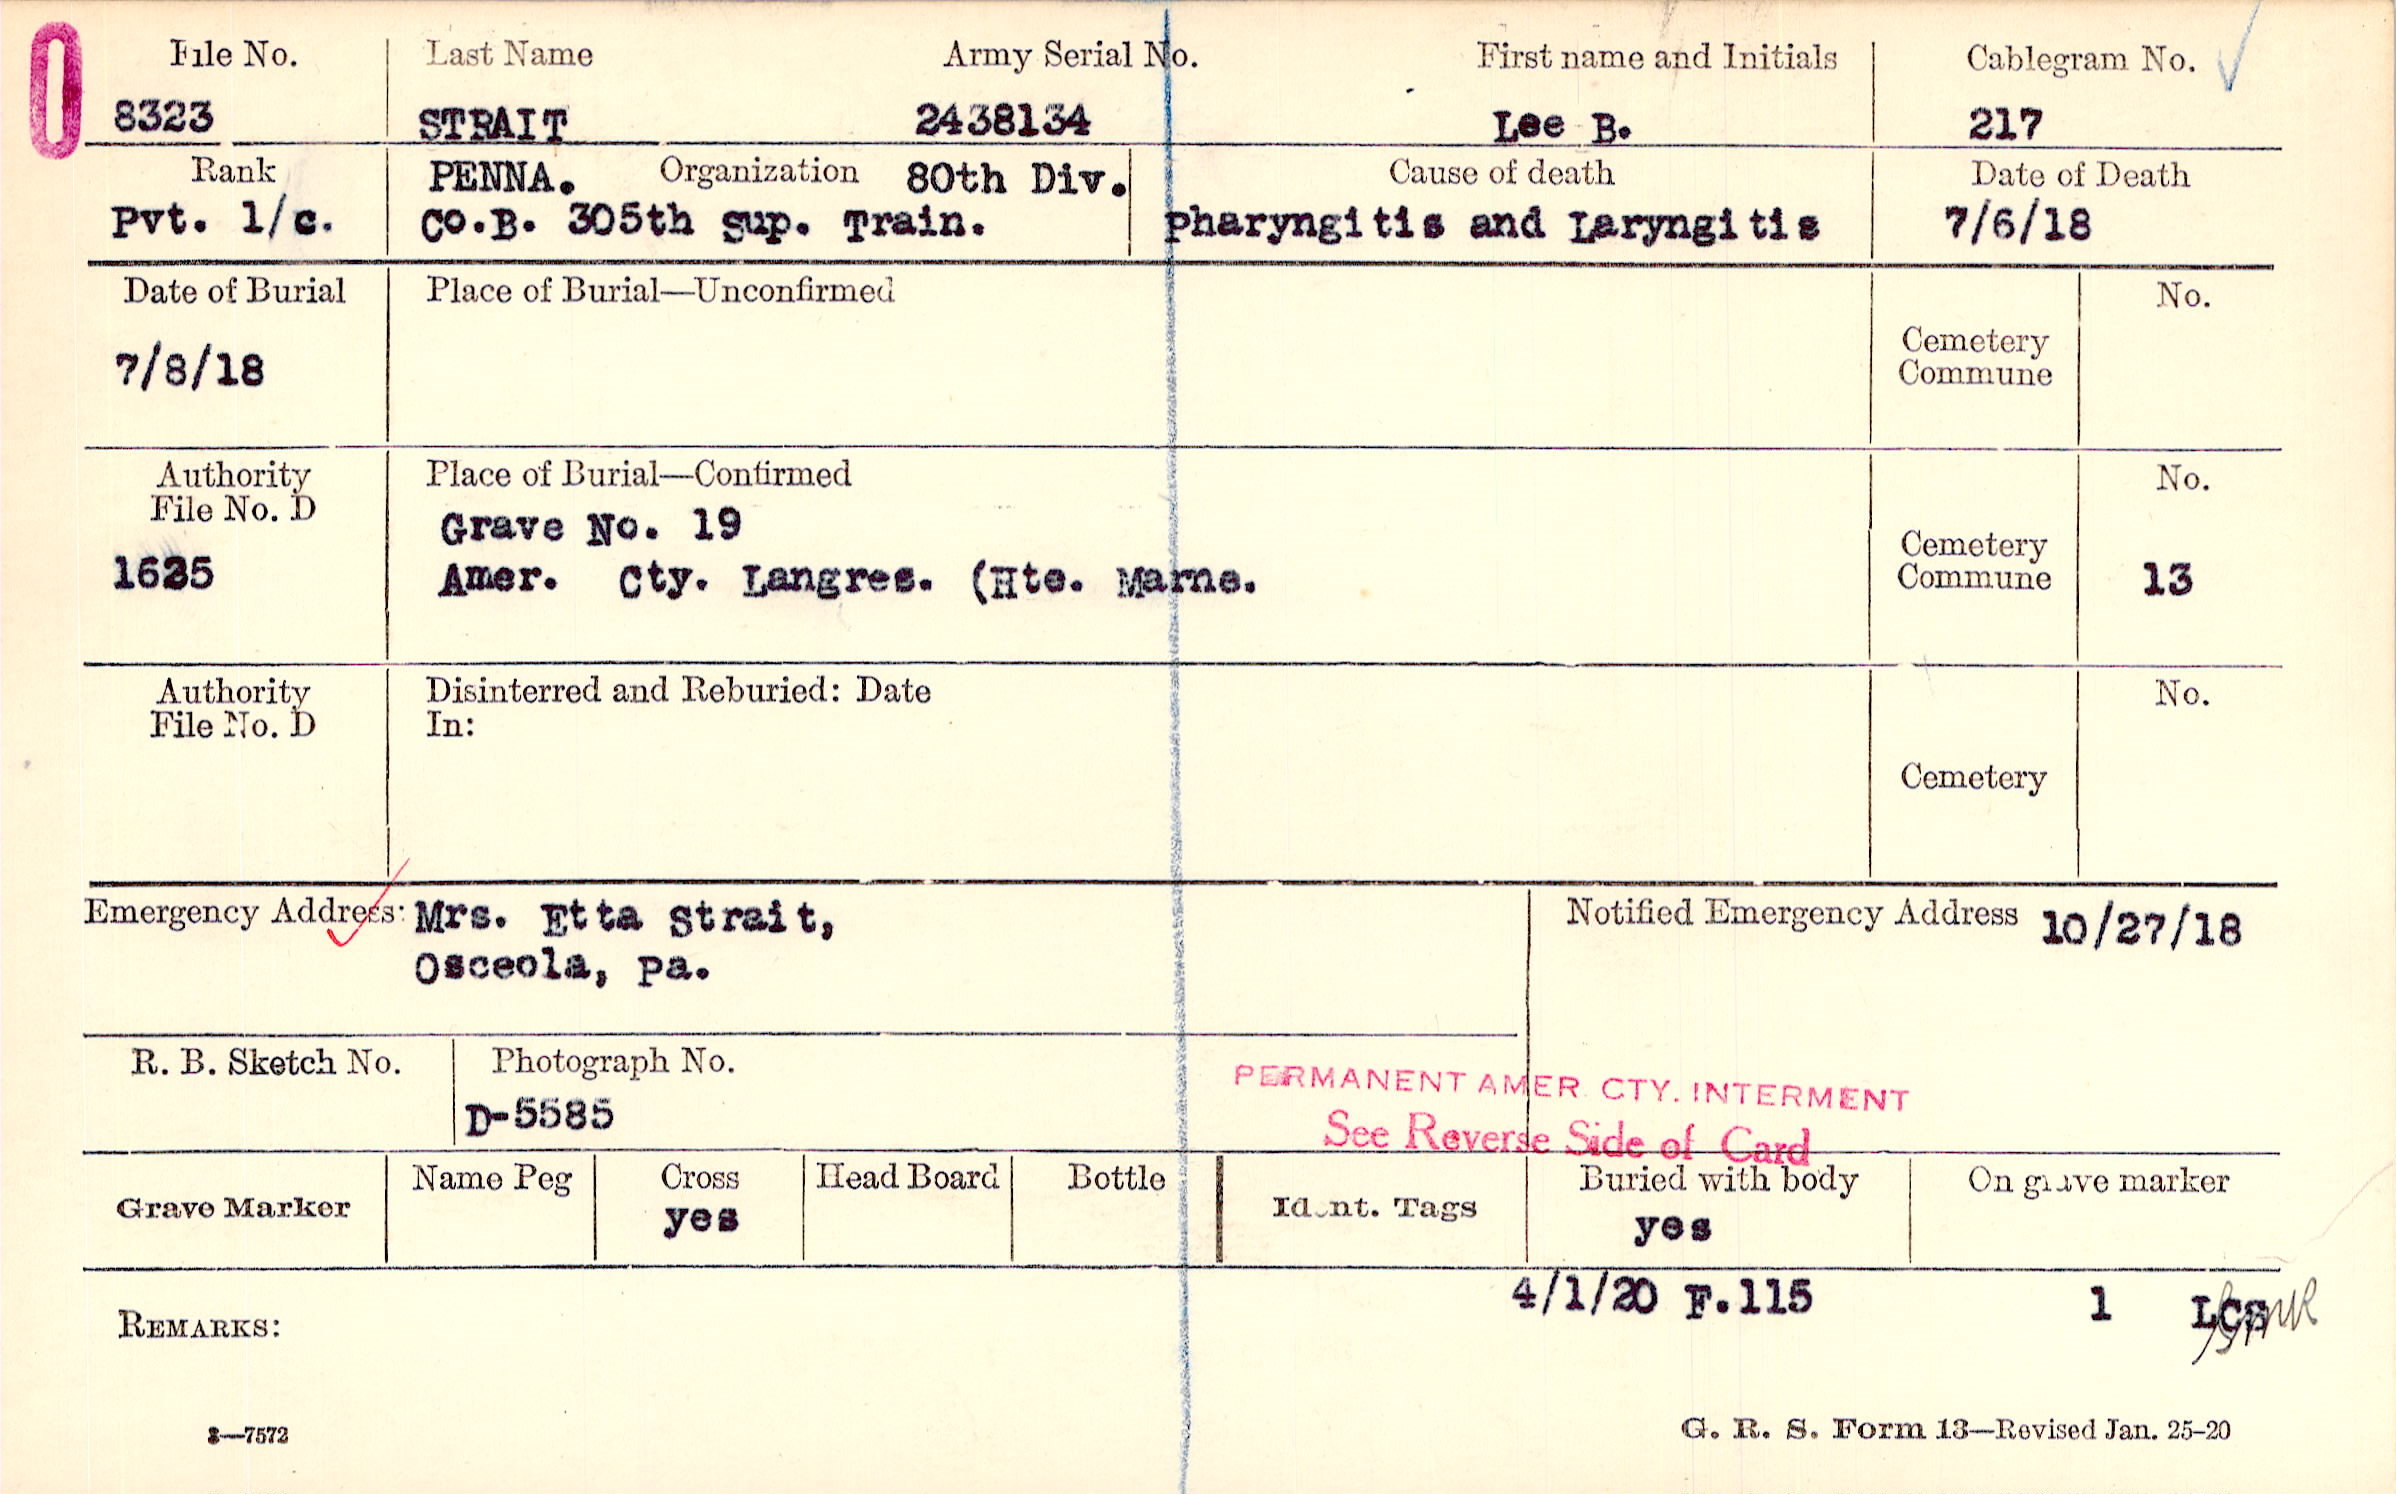 0
File No. Last Name Army Serial No. First name and Initials Cablegram No.
8323 STRAIT 2438134 Lee B. 217
Rank PENNA. Organization 80th Div. Cause of death Date of Death
Pvt. 1/c. Co.B. 305th Sup. Train. Pharyngitis and Laryngitis 7/6/18
Date of Burial Place of Burial—Unconfirmed No.
7/8/18 Cemetery
Commune
Authority Place of Burial—Confirmed No.
File No. D
Grave No. 19
Cemetery
1625 Amer. Cty. Langres. (Hte. Marne. Commune 13
Authority Disinterred and Reburied: Date No.
File No. D In:
Cemetery
Emergency Address: Mrs. Etta Strait, Notified Emergency Address 10/27/18
Osceola, Pa.
R. B. Sketch No. Photograph No.
D-5585
PERMANENT AMER. CTY. INTERMENT
See Reverse Side of Card
Grave Marker Name Peg Cross Head Board Bottle Ident. Tags Buried with body On grave marker
yes yes
4/1/20 F.115 1 LCS
REMARKS:
3—7572 G. R. S. Form 13—Revised Jan. 25-20